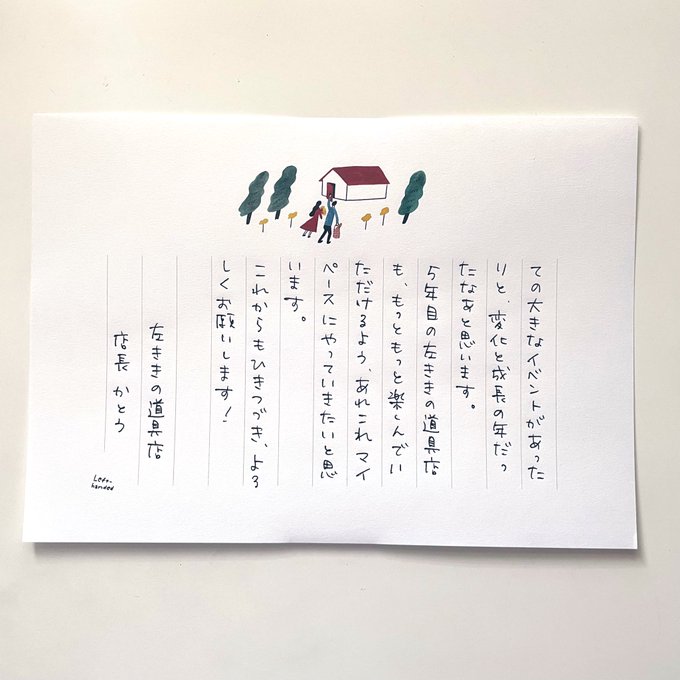 ての大きなイベントがあった
りと、変化と成長の年だっ
たなあと思います。
5年目の左ききの道具店
も、もっともっと楽しんでい
ただけるよう、あれこれマイ
ペースにやっていきたいと思
います。
これからもひきつづき、よろ
しくお願いします!
左ききの道具店
店長 かとう
Left-
handed